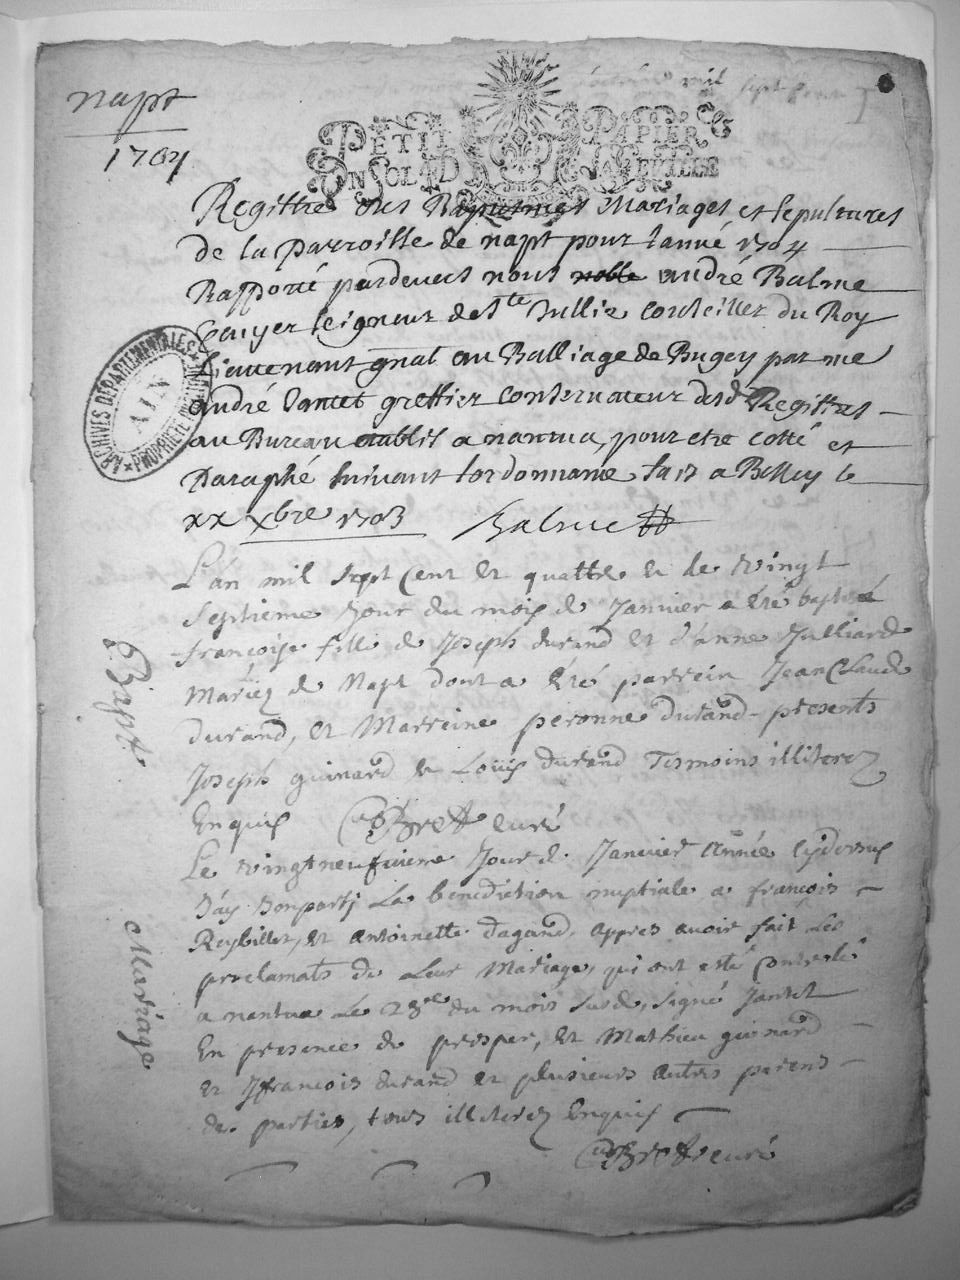 napt
1704
PETIT PAPIER
UN SOL LA D. FEUILLE
mil sept cent
Registre des Baptesmes Mariages et sepultures
de la Parroisse de napt pour lanné 1704
Rapporté pardevant nous noble andré Balme
Escuyer seigneur de Ste Jullie conseiller du Roy
Lieutenant gnal au Balliage de Bugey par me
andré Jantet greffier conservateur desd Registres
au Bureau establis a nantua, pour etre cotté et
Paraphé suivant lordonnanse fait a Belley le
xx xbre 1703 Balme
ARCHIVES DÉPARTEMENTALES
AIN
PROPRIÉTÉ PUBLIQUE
Bapt.
L'an mil sept cent et quattre et le vingt
septieme Jour du mois de Janvier a été baptisé
françoise fille de Joseph durand et d'anne Julliard
Mariez de Napt dont a été parrein Jean Claude
durand, et Marreine peronne durand presents
Joseph guinard et Louis durand Tesmoins illiterez
Enquis Brett curé
Mariage
Le vingtneufvieme Jour de Janvier année cydessus
J'ay Donparty La benediction nuptiale a françois
Reybillet, et antoinette dagand, appres avoir fait Les
proclamats de Leur Mariage, qui ont esté Controlé
a nantua Le 28e du mois susd, signé Jantet
En presence de prosper, et Mathieu guinard
et françois durand et plusieurs autres parens
de parties, tous illiterez Enquis
Brett curé